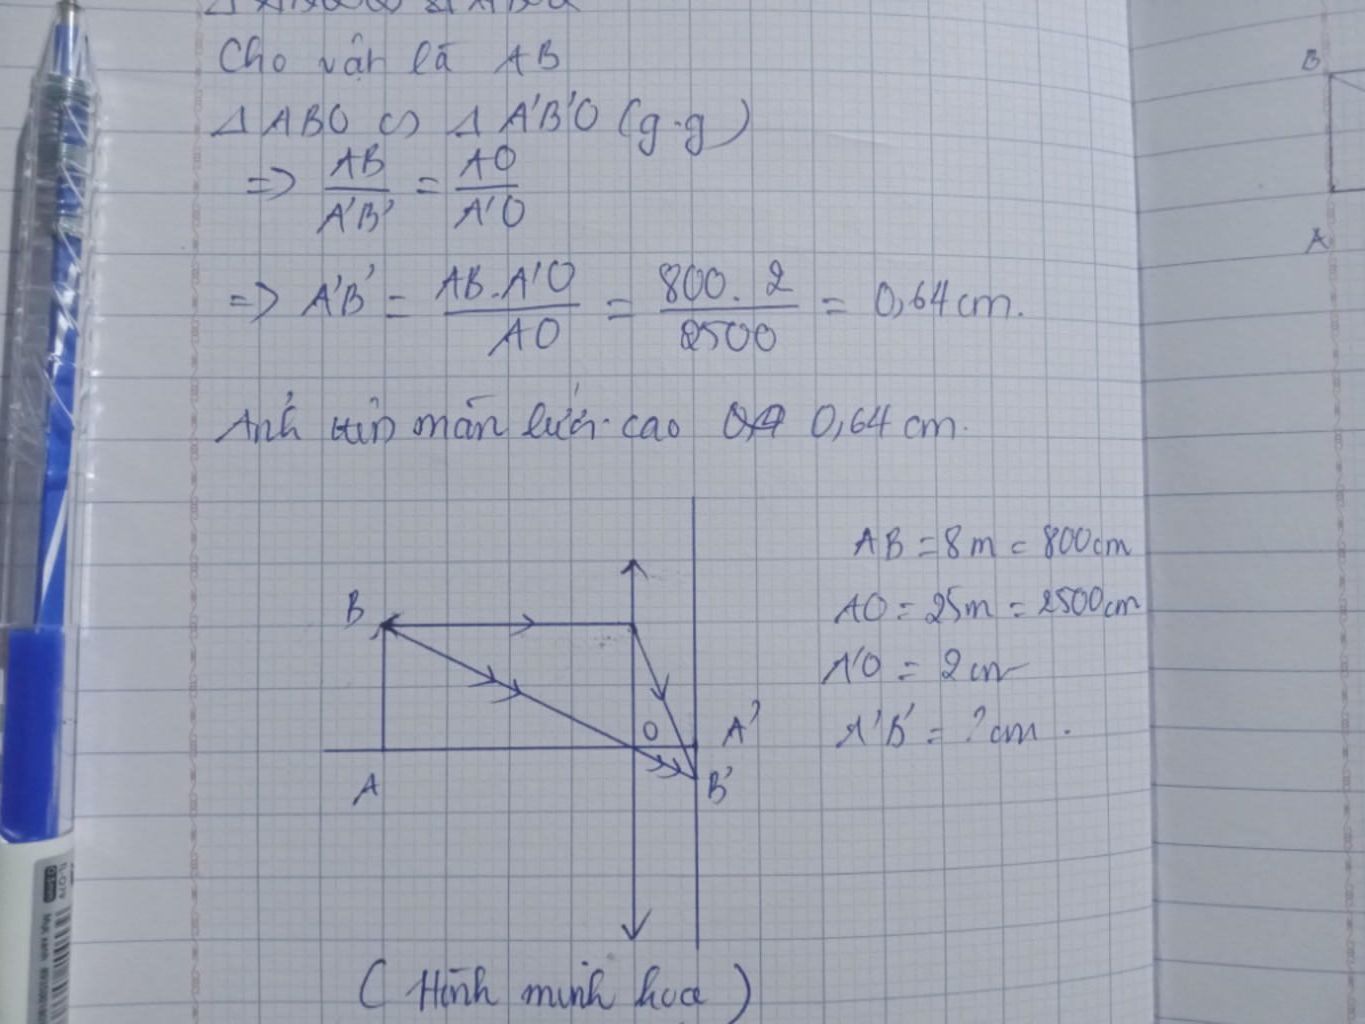 Cho vật là AB
Δ ABO ∽ Δ A'B'O (g.g)
=> AB/A'B' = AO/A'O
=> A'B' = AB.A'O/AO = 800.2/2500 = 0,64 cm.
Ảnh trên màn lưới cao 0,64 cm.
AB = 8m = 800cm
AO = 25m = 2500cm
A'O = 2cm
A'B' = ? cm.
B
O
A'
A
B'
(Hình minh hoạ)
B
A